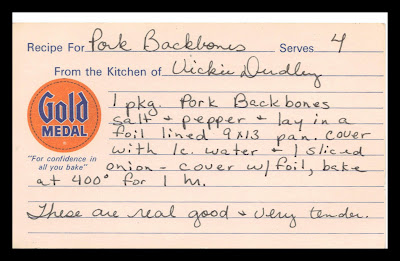 Recipe For Pork Backbones Serves 4
From the Kitchen of Vickie Dudley
Gold
MEDAL
"For confidence in
all you bake"
1 pkg. Pork Backbones
salt + pepper + lay in a
foil lined 9x13 pan. cover
with 1c. water + 1 sliced
onion - cover w/foil, bake
at 400° for 1 hr.
These are real good + very tender.